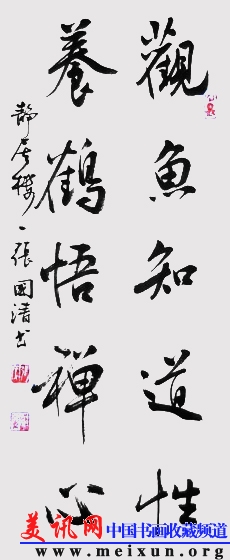 觀魚知道性
養鶴悟禪心
靜居樓一張國清书
美讯网 中国书画收藏频道
www.meixun.org